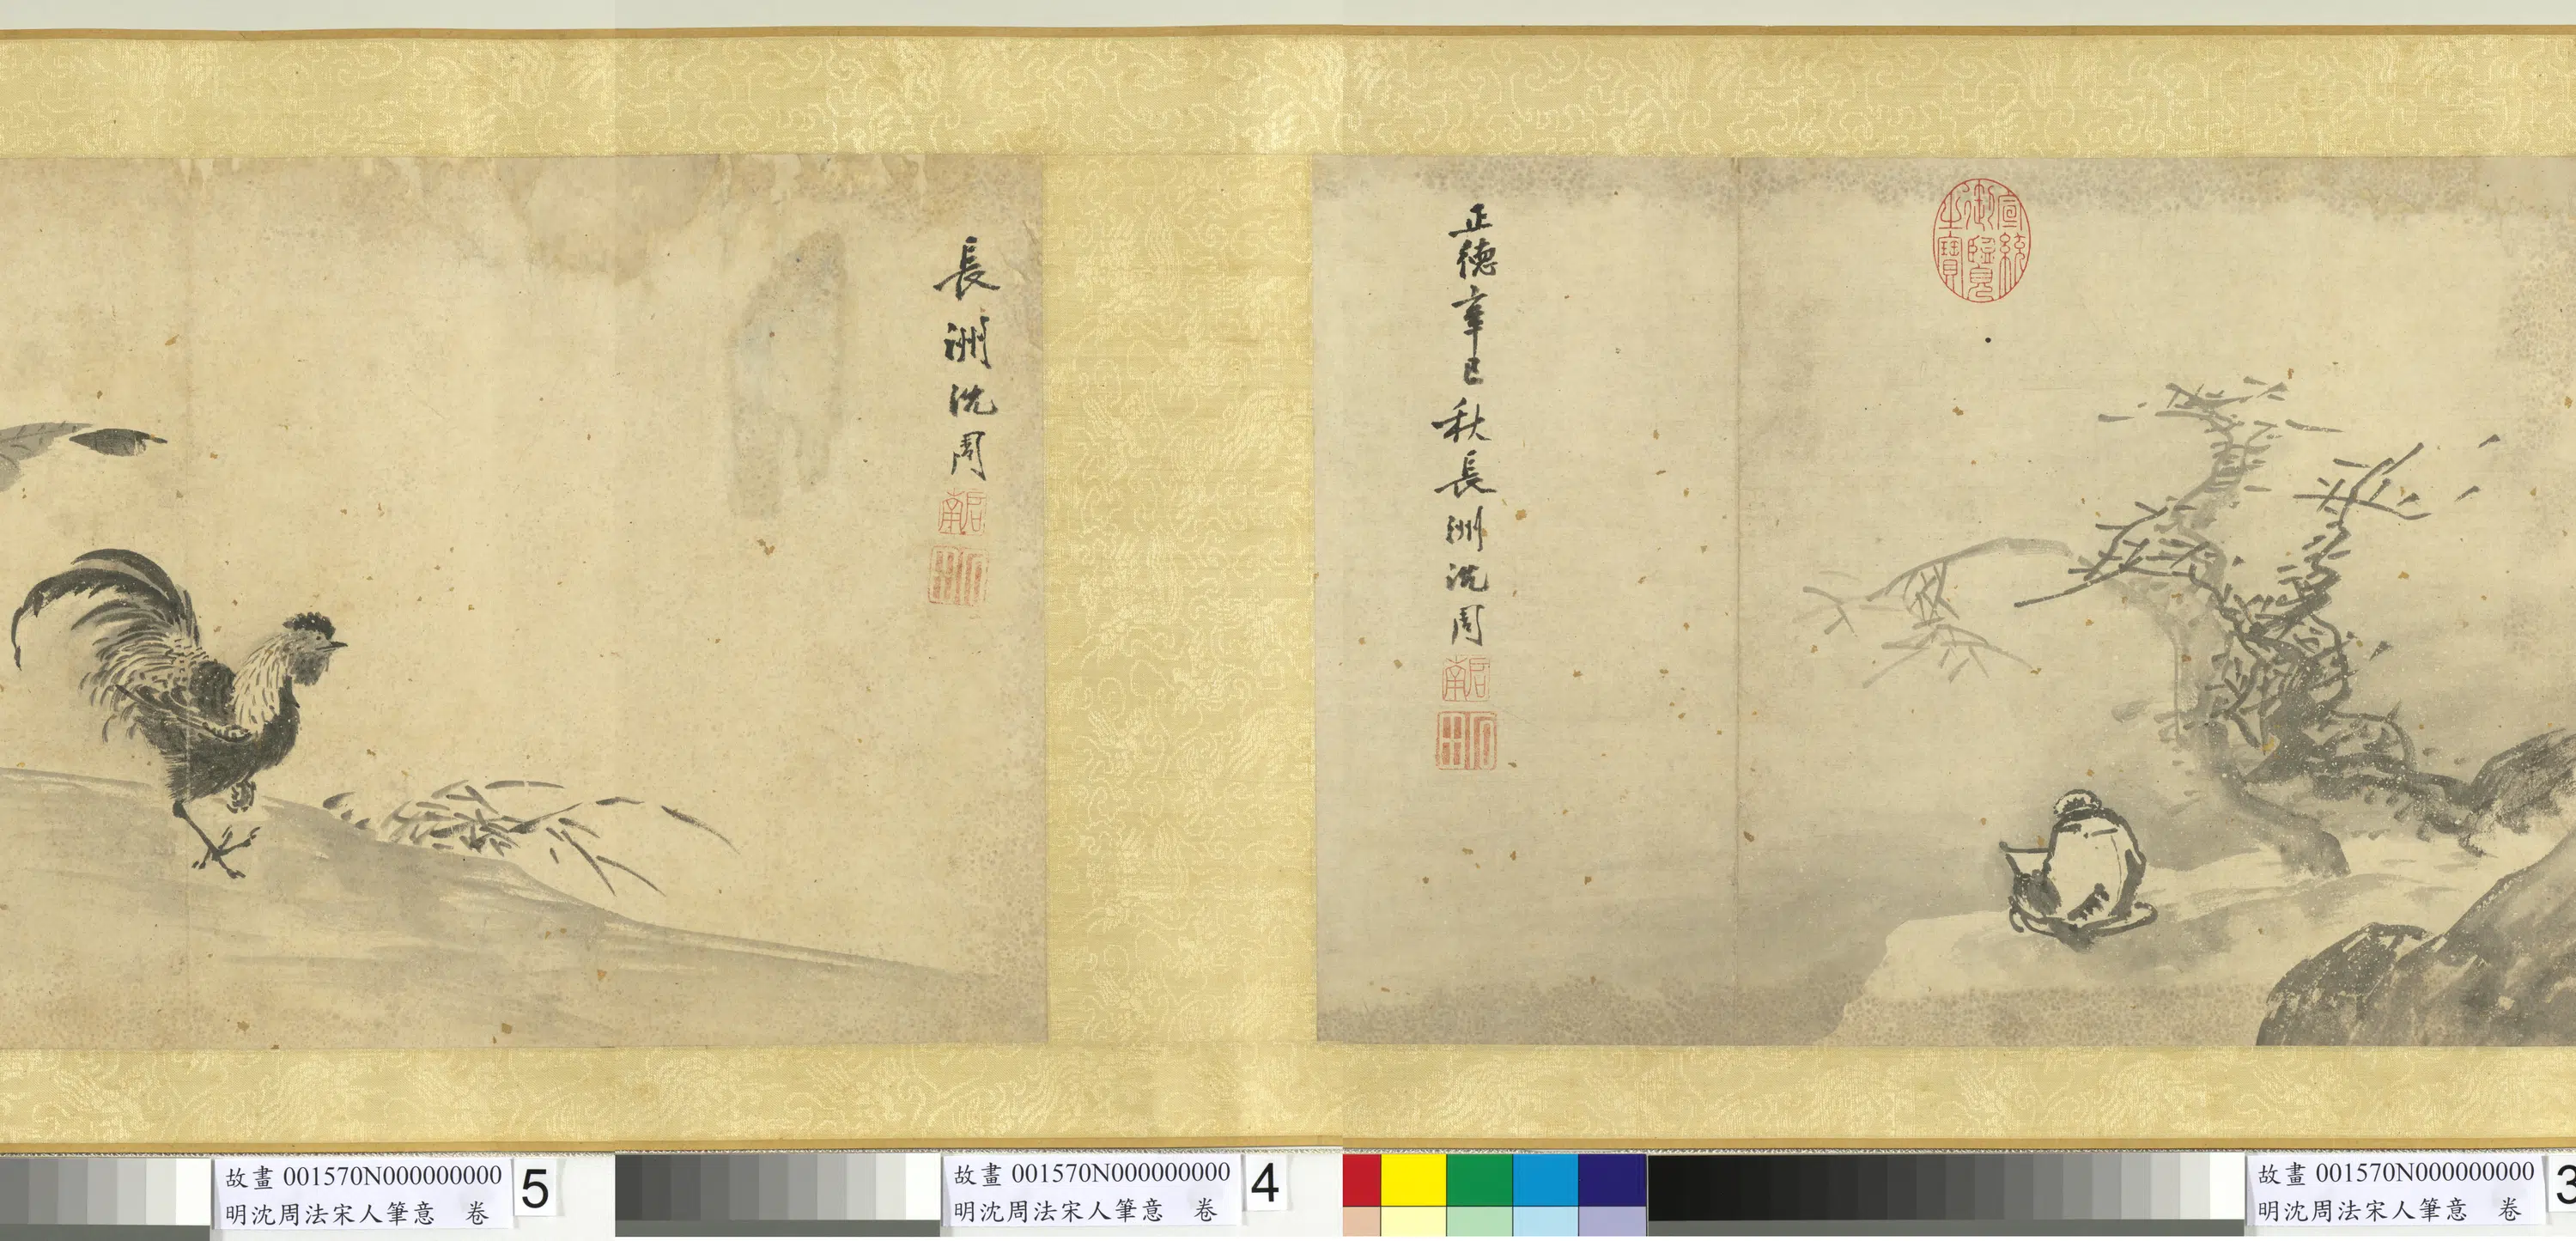 宣統御覽之寶
正德辛巳秋長洲沈周
啟南
長洲沈周
啟南
故畫 001570N000000000
明沈周法宋人筆意 卷
5
故畫 001570N000000000
明沈周法宋人筆意 卷
4
故畫 001570N000000000
明沈周法宋人筆意 卷
3